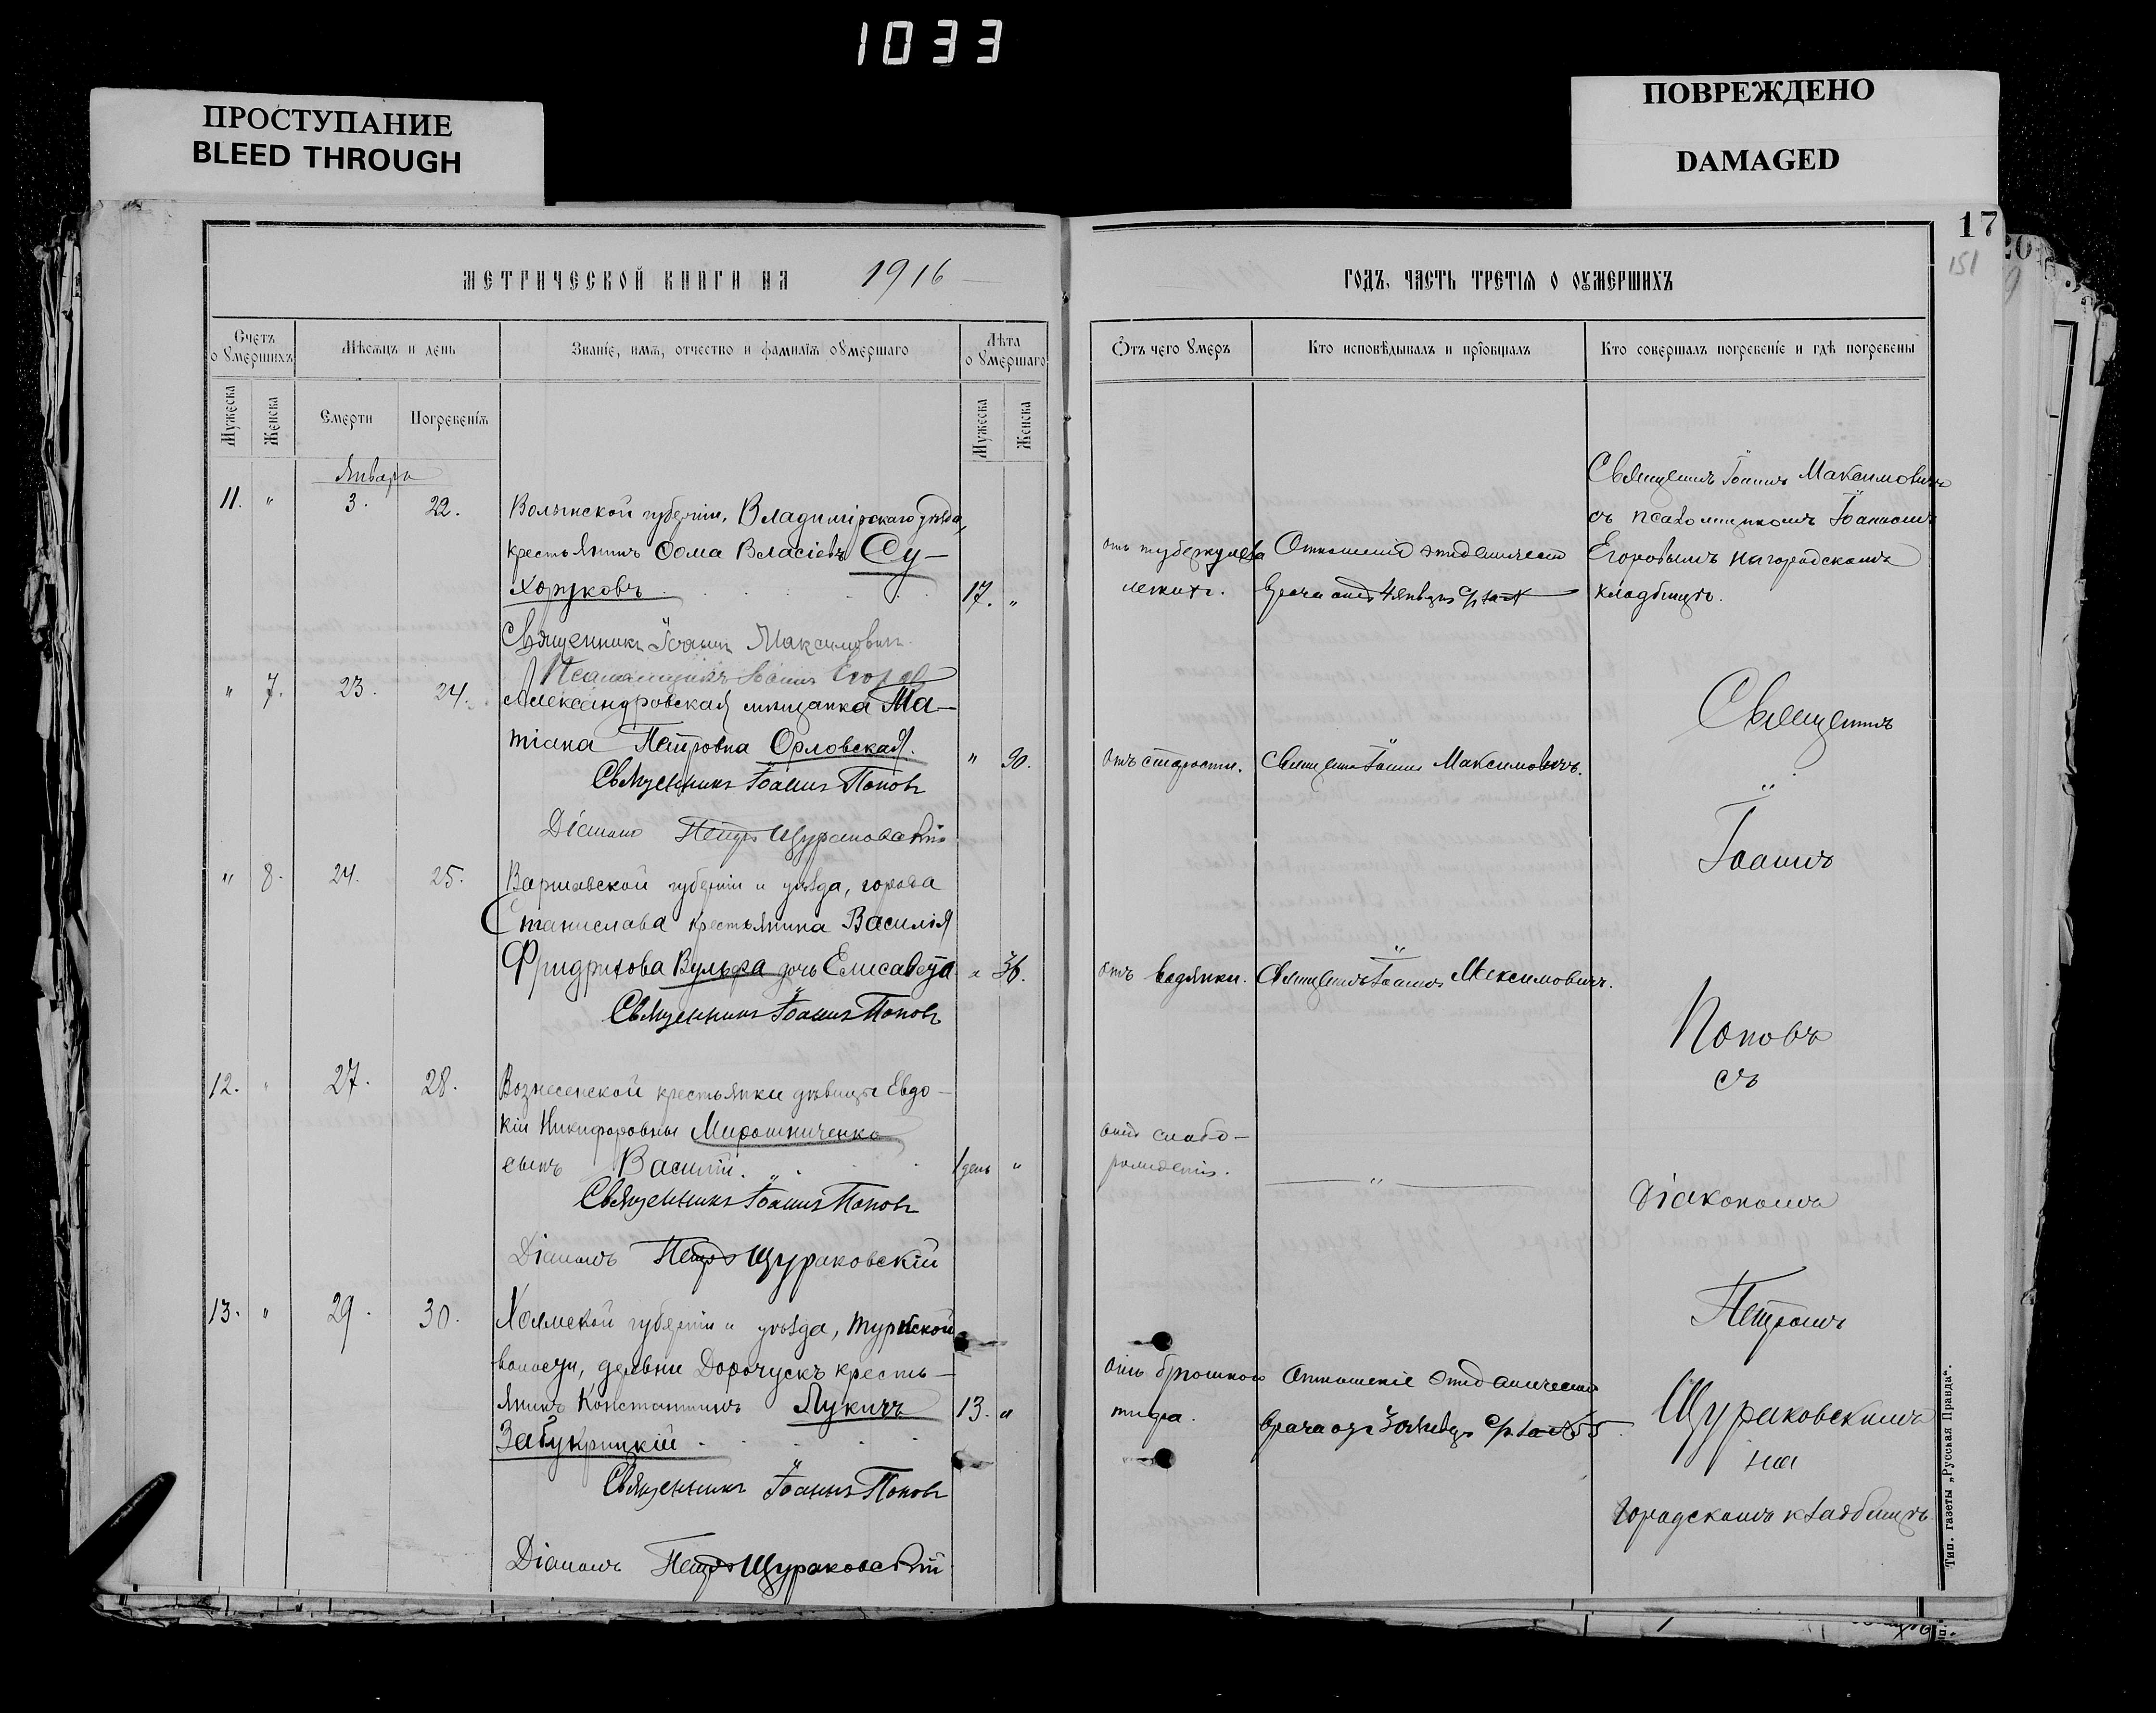 1033
ПРОСТУПАНИЕ
BLEED THROUGH
ПОВРЕЖДЕНО
DAMAGED
17
20
151
МЕТРИЧЕСКОЙ КНИГИ НА 1916
ГОДЪ, ЧАСТЬ ТРЕТІЯ О ОУМЕРШИХЪ
Счетъ
о Умершихъ
Мѣсяцъ и день
Званіе, имя, отчество и фамилія оумершаго
Лѣта
о Умершаго
Отъ чего Умеръ
Кто исповѣдывалъ и пріобщалъ
Кто совершалъ погребеніе и гдѣ погребены
Мужеска
Женска
Смерти
Погребенія
Мужеска
Женска
Января
11. " 3. 22. Волынской губерніи, Владимірскаго уѣзда,
крестьянинъ Ѳома Власіевъ Су-
хоруковъ 17. "
отъ туберкулеза
легкихъ.
Отношеніе эпидемическ
врача отъ 4 января с/г за №
Священникъ Іоаннъ Максимовичъ
съ псаломщикомъ Іоанномъ
Егоровымъ на городскомъ
кладбищѣ.
Священникъ Іоаннъ Максимовичъ
Псаломщикъ Іоаннъ Егоров
" 7. 23. 24. Александровская мѣщанка Та-
тіана Петровна Орловская. " 90.
отъ старости. Священ Іоаннъ Максимовичъ.
Священникъ Іоаннъ Поповъ
Діаконъ Петръ Щураковскій
" 8. 24. 25. Варшавской губерніи и уѣзда, города
Станислава крестьянина Василія
Фридрихова Вульфа дочь Елисавета " 36.
отъ водянки. Священникъ Іоаннъ Максимовичъ.
Священникъ Іоаннъ Поповъ
12. " 27. 28. Вознесенской крестьянки дѣвицы Евдо-
кіи Никифоровны Мирошниченко
сынъ Василій. 1 день "
отъ слабо-
рожденія. "
Священникъ Іоаннъ Поповъ
Діаконъ Петръ Щураковскій
13. " 29. 30. Холмской губерніи и уѣзда, Турской
волости, деревни Дорогускъ кресть-
янинъ Константинъ Лукичъ 13. "
Забукрицкій
отъ брюшного
тифа.
Отношеніе эпидемическ
врача отъ 30 янвр с/г за № 55
Священникъ Іоаннъ Поповъ
Діаконъ Петръ Щураковскій
Священникъ
Іоаннъ
Поповъ
съ
діакономъ
Петромъ
Щураковскимъ
на
городскомъ кладбищѣ
Тип. газеты „Русская Правда“.